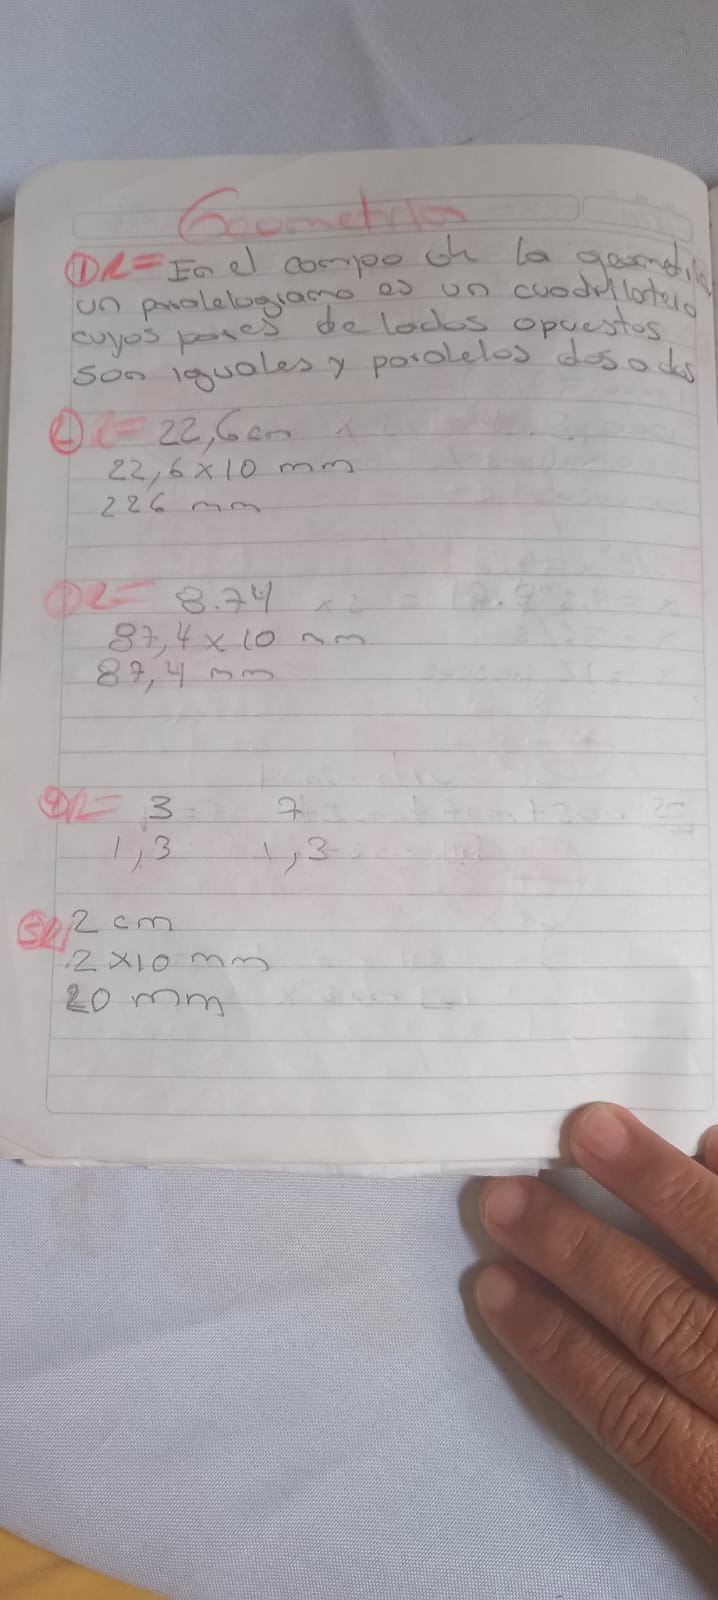 Geometria
① R= En el campo de la geometria
un paralelogramo es un cuadrilatero
cuyos pares de lados opuestos
son iguales y paralelos dos a dos
② R= 22,6 cm
22,6 x 10 mm
226 mm
③ R= 8.74
87,4 x 10 mm
87,4 mm
④ R= 3 7
1,3 1,3
⑤ R/ 2 cm
2 x10 mm
20 mm